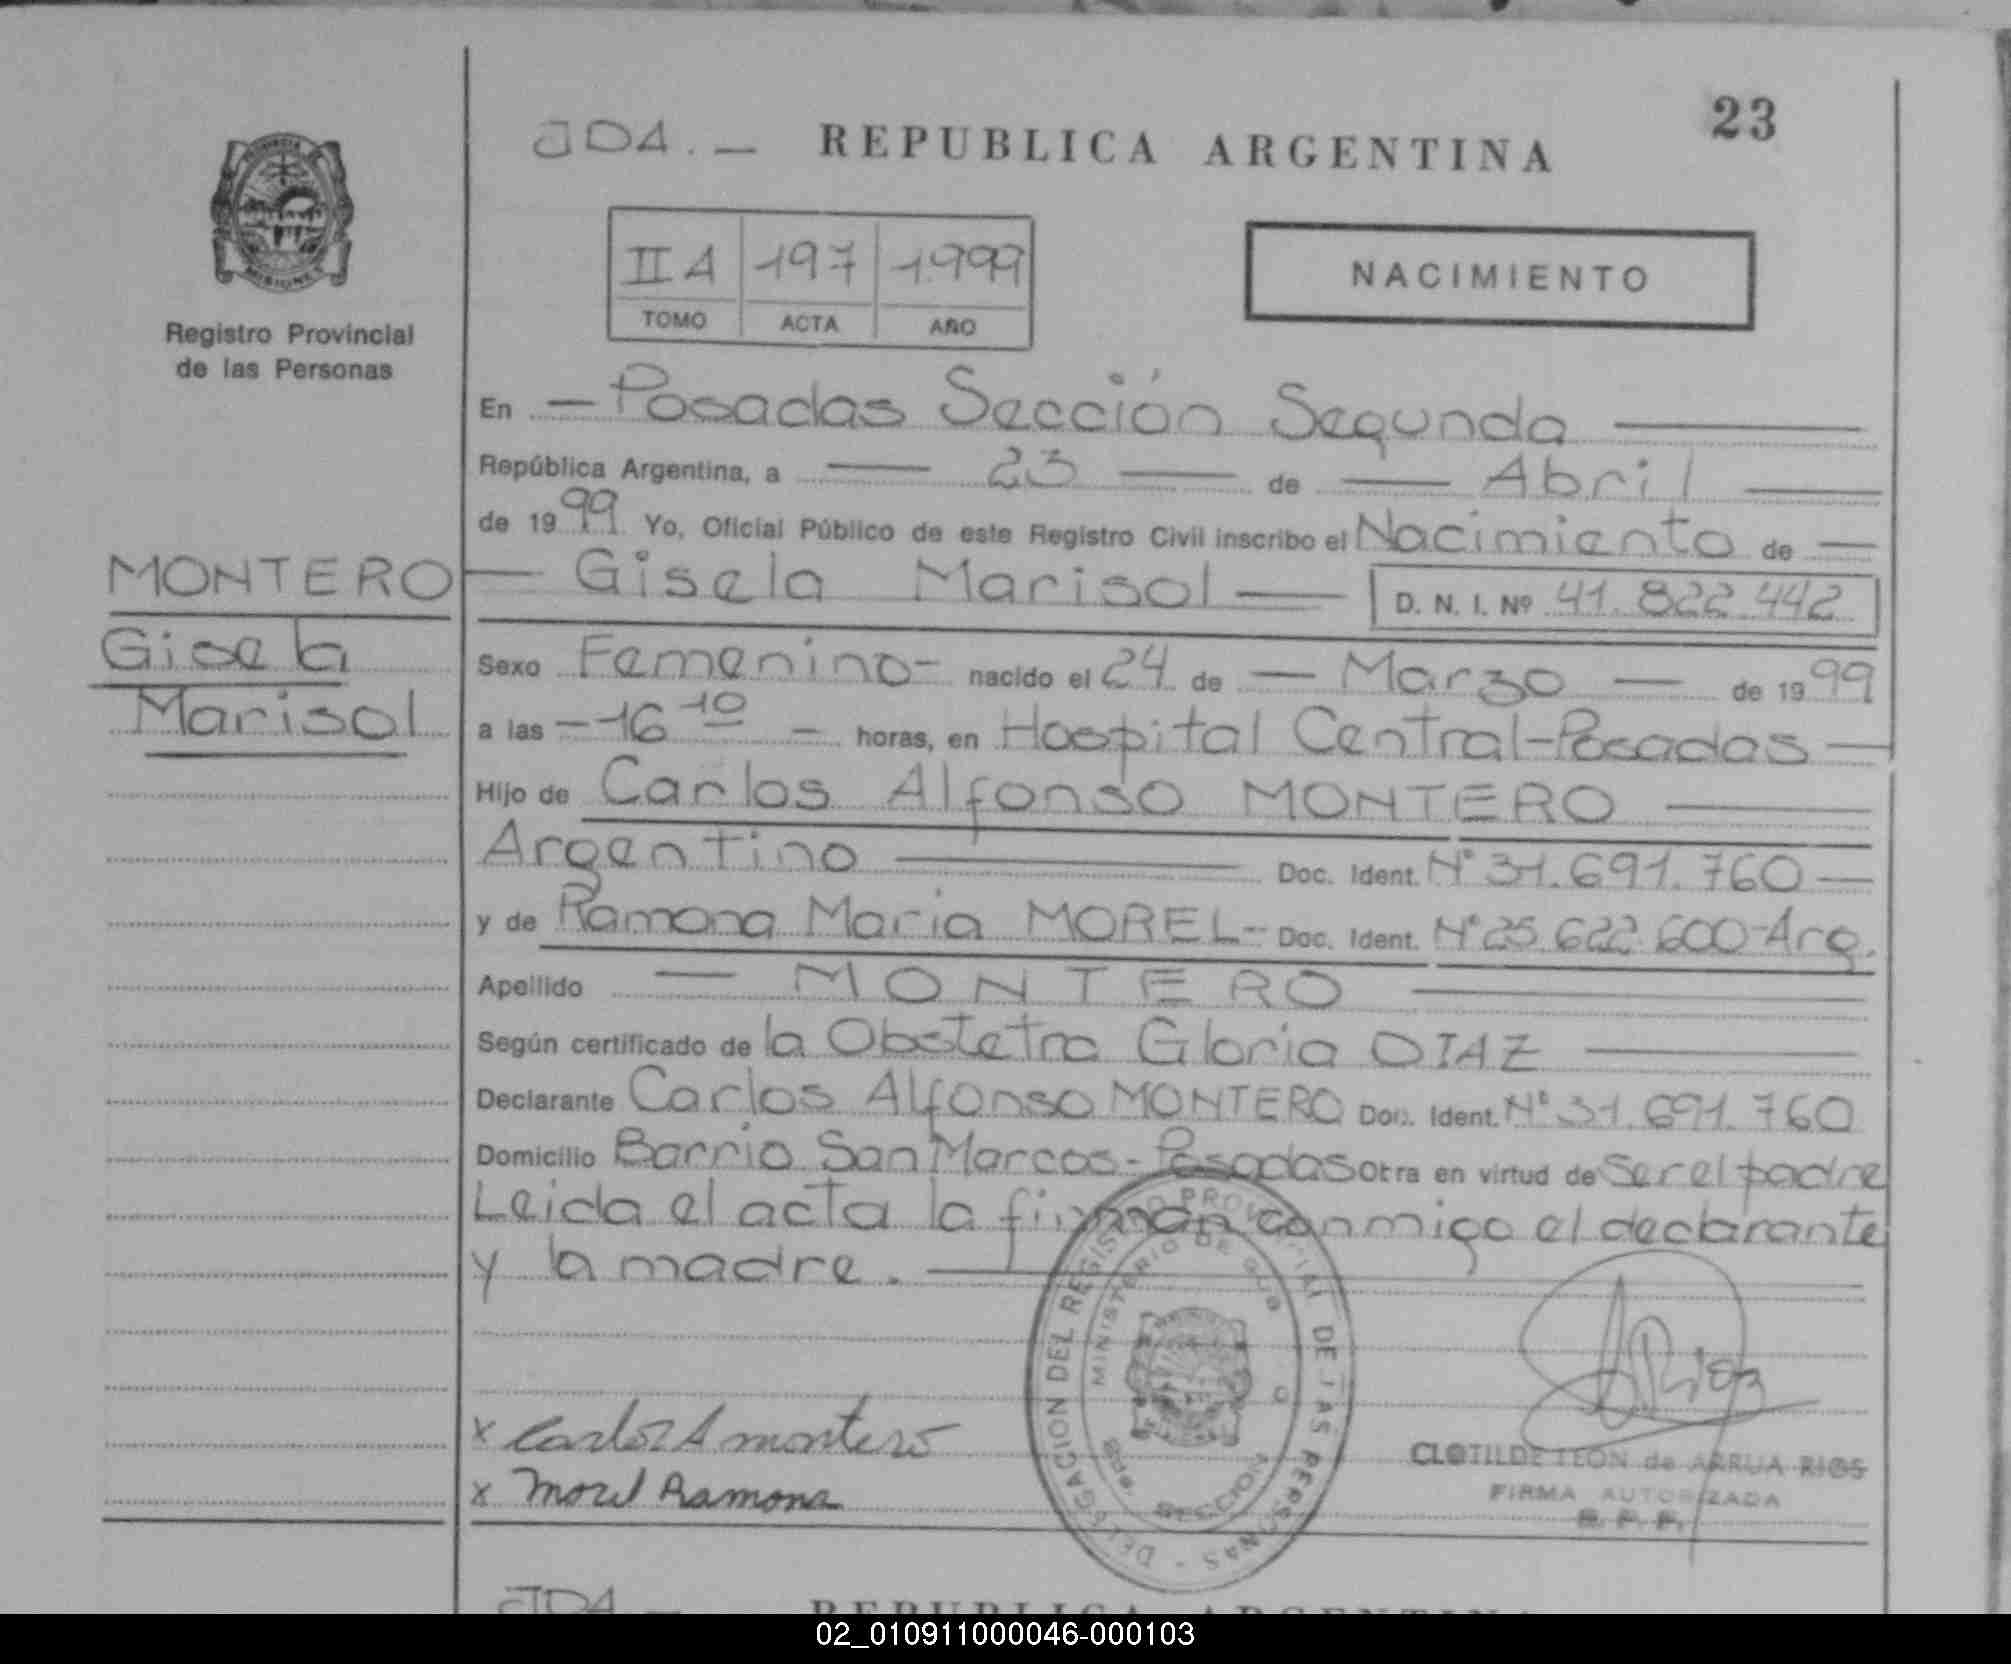 23
JDA. — REPUBLICA ARGENTINA
PROVINCIA DE
MISIONES
Registro Provincial
de las Personas
II A 197 1.999
TOMO ACTA AÑO
NACIMIENTO
En — Posadas Sección Segunda —
República Argentina, a — 23 — de — Abril —
de 1999 Yo, Oficial Público de este Registro Civil inscribo el Nacimiento de —
MONTERO — Gisela Marisol — D. N. I. Nº 41.822.442
Gisela
Marisol
Sexo Femenino - nacido el 24 de — Marzo — de 1999
a las - 16 10 - horas, en Hospital Central - Posadas —
Hijo de Carlos Alfonso MONTERO —
Argentino — Doc. Ident. Nº 31.691.760 —
y de Ramona Maria MOREL - Doc. Ident. Nº 25.622.600 - Arg.
Apellido — MONTERO —
Según certificado de la Obstetra Gloria DIAZ —
Declarante Carlos Alfonso MONTERO Doc. Ident. Nº 31.691.760
Domicilio Barrio San Marcos - Posadas Otra en virtud de Ser el padre
Leida el acta la firman conmigo el declarante
y la madre. —
DELEGACION DEL REGISTRO PROVINCIAL DE LAS PERSONAS -
MINISTERIO DE GOB
SECCION
x Carlos A montero
x Morel Ramona
ARios
CLOTILDE LEON de ARRUA RIOS
FIRMA AUTORIZADA
R. P. P.
JDA — REPUBLICA ARGENTINA
02_010911000046-000103